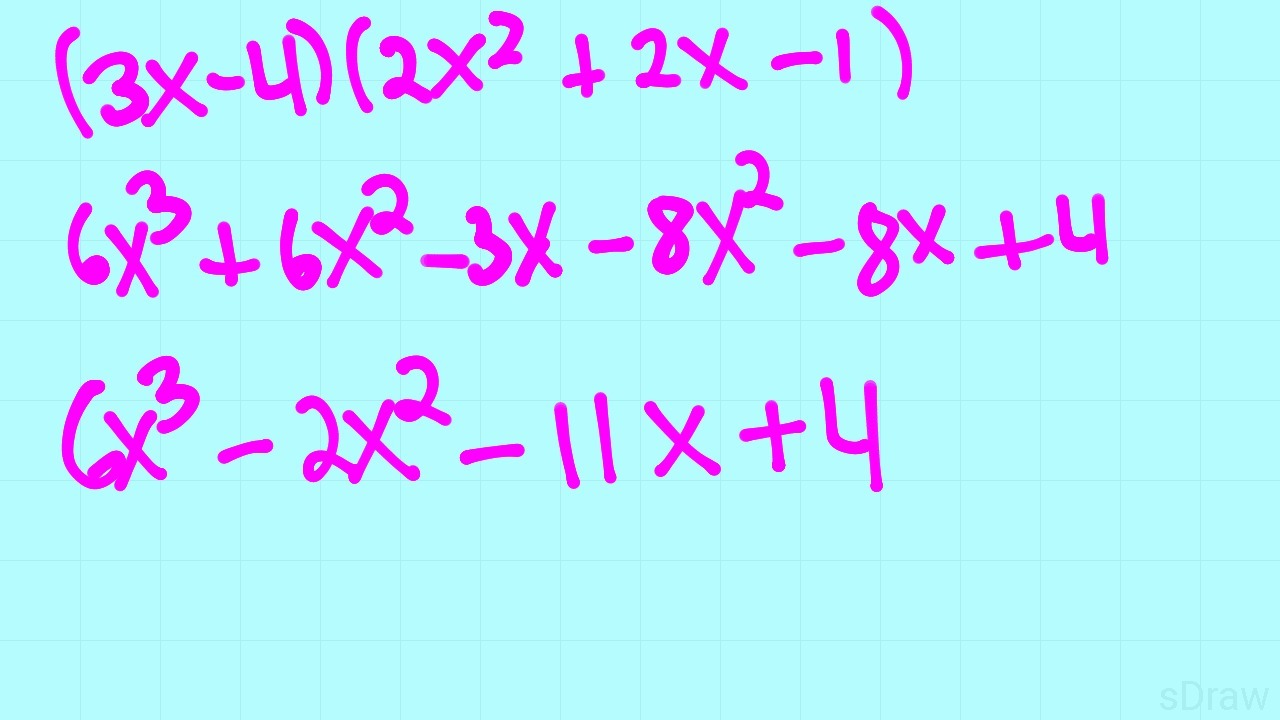 (3x-4)(2x² + 2x - 1)
6x³ + 6x² - 3x - 8x² - 8x + 4
6x³ - 2x² - 11x + 4
sDraw